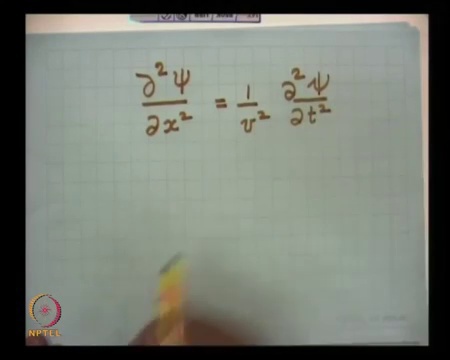 ∂²ψ/∂x² = 1/v² ∂²ψ/∂t²
NPTEL